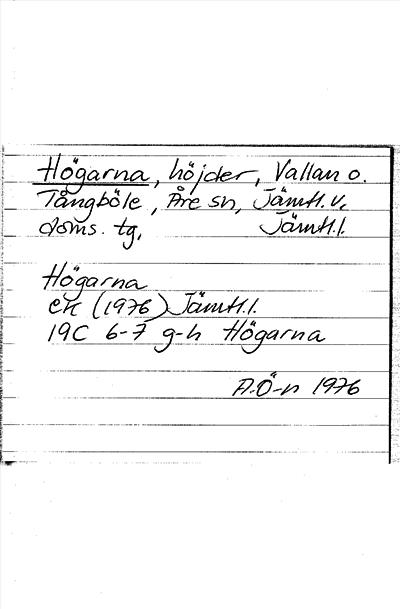 Högarna, höjder, Vallan o.
Tångböle, Åre sn, Jämtl. v.
doms. tg, Jämtl.l.
Högarna
ek (1976) Jämtl.l.
19C 6-7 g-h Högarna
A.Ö-n 1976